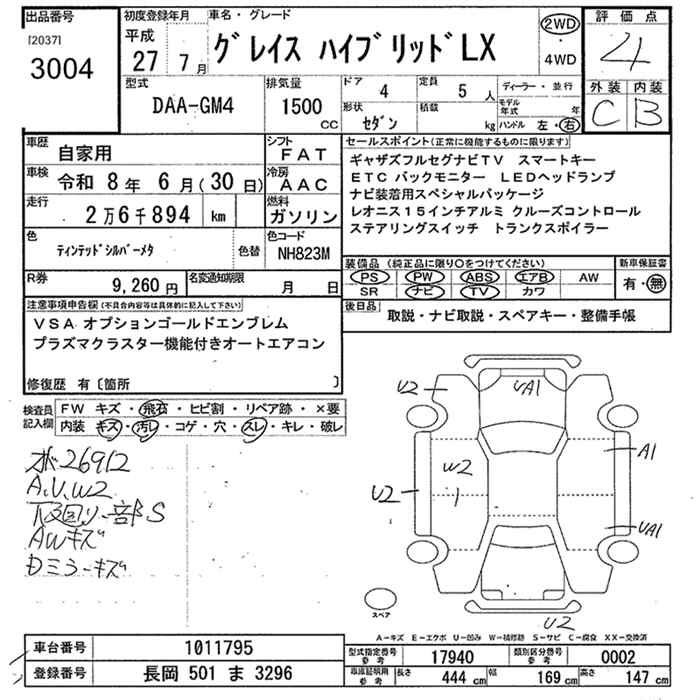 出品番号
[2037]
3004
初度登録年月
平成
27 7月
車名・グレード
グレイス ハイブリッドLX
2WD
・
4WD
評価点
4
外装 内装
C B
型式
DAA-GM4
排気量
1500 CC
ドア
4
定員
5 人
形状
セダン
積載
kg
ディーラー・並行
モデル年式 年
ハンドル 左・右
車歴
自家用
シフト
FAT
車検
令和 8年 6月(30日)
冷房
AAC
走行
2万6千894 km
燃料
ガソリン
色
ティンテッドシルバーメタ
色替
色コード
NH823M
R券
9,260円
名変通知期限
月 日
セールスポイント(正常に機能するものに限ります)
ギャザズフルセグナビTV スマートキー
ETC バックモニター LEDヘッドランプ
ナビ装着用スペシャルパッケージ
レオニス15インチアルミ クルーズコントロール
ステアリングスイッチ トランクスポイラー
装備品(純正品に限り○をつけてください)
PS PW ABS エアB AW
SR ナビ TV カワ
新車保証書
有・無
後日品
取説・ナビ取説・スペアキー・整備手帳
注意事項申告欄(不具合内容等は具体的に記入して下さい)
VSA オプションゴールドエンブレム
プラズマクラスター機能付きオートエアコン
修復歴 有〔箇所 〕
検査員記入欄
FW キズ・飛石・ヒビ割・リペア跡・×要
内装 キズ・汚レ・コゲ・穴・スレ・キレ・破レ
オボ26912
A.U.W2
下回り一部S
AWキズ
Dミラーキズ
U2
UA1
A1
W2
1
U2
UA1
U2
スペア
A-キズ E-エクボ U-凹み W-補修跡 S-サビ C-腐食 XX-交換済
車台番号
1011795
登録番号
長岡 501 ま 3296
型式指定番号
参考
17940
類別区分番号
参考
0002
車庫証明用
参考
長さ
444 cm
幅
169 cm
高さ
147 cm